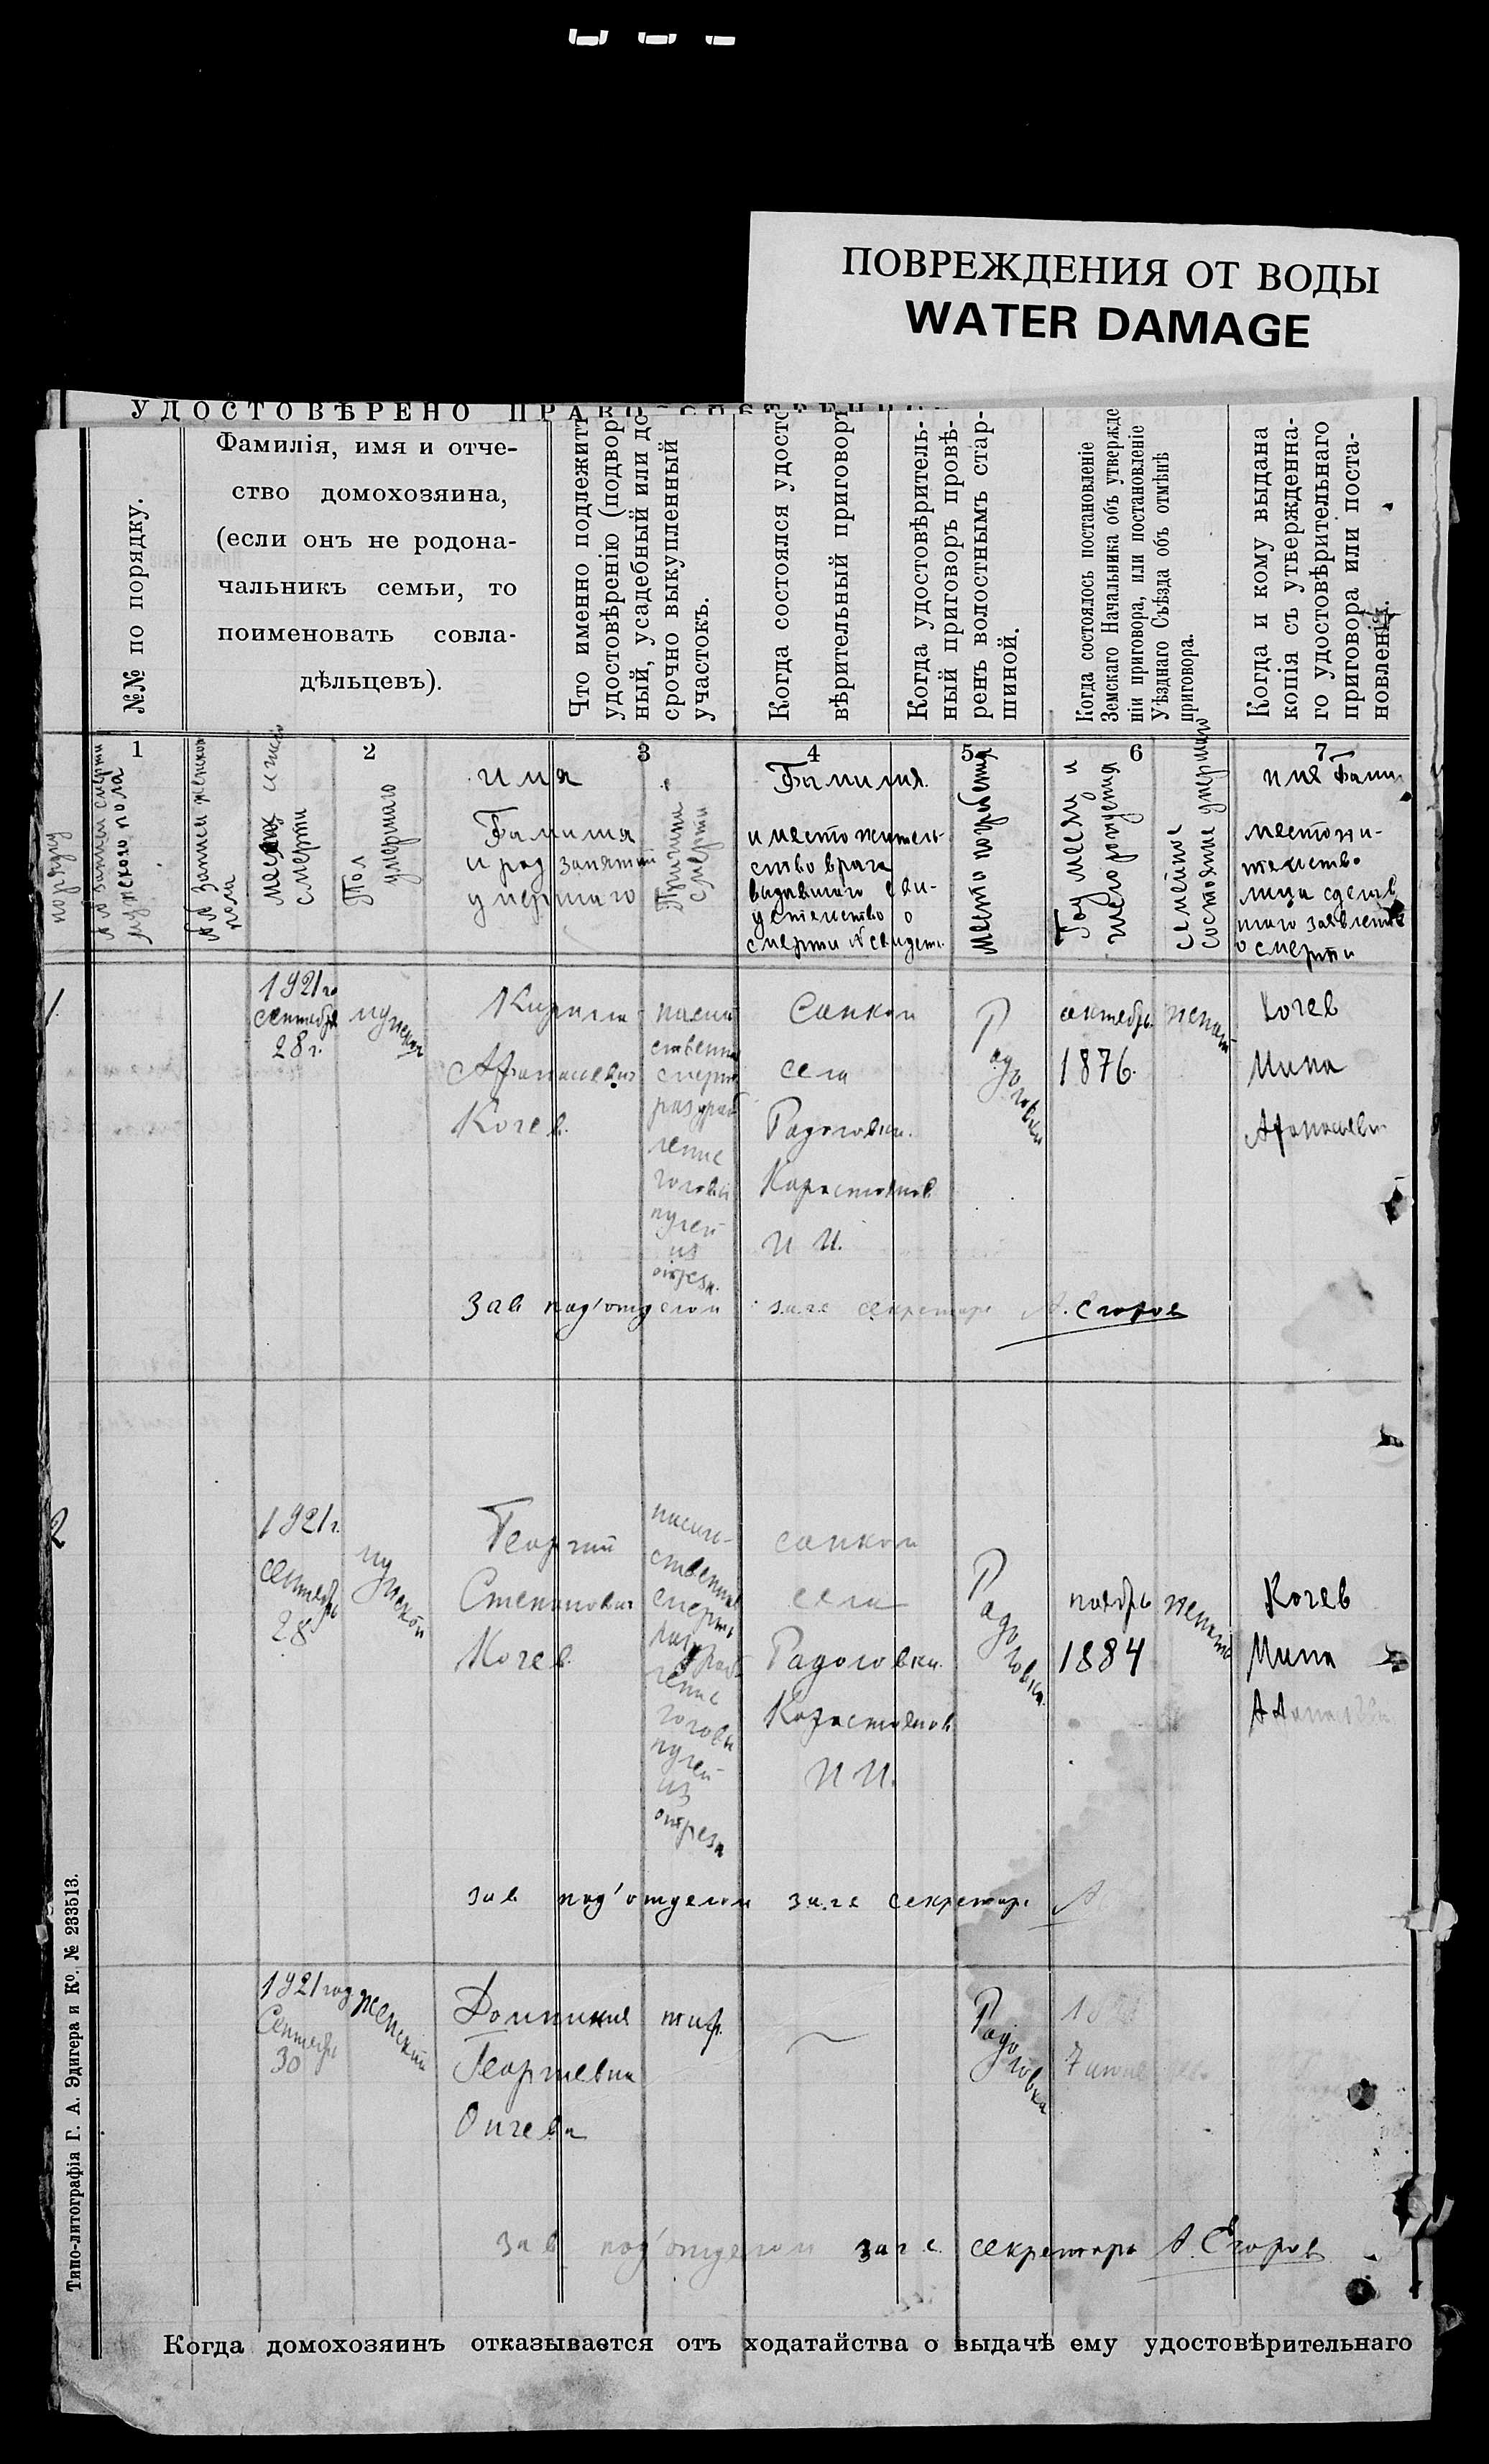 ПОВРЕЖДЕНИЯ ОТ ВОДЫ
WATER DAMAGE
УДОСТОВѢРЕНО
№№ по порядку.
Фамилія, имя и отче-
ство домохозяина,
(если онъ не родона-
чальникъ семьи, то
поименовать совла-
дѣльцевъ).
Что именно подлежитъ
удостовѣренію (подвор
ный, усадебный или до
срочно выкупленный
участокъ.
Когда состоялся удосто
вѣрительный приговоръ
Когда удостовѣритель-
ный приговоръ провѣ-
ренъ волостнымъ стар-
шиной.
Когда состоялось постановленіе
Земскаго Начальника объ утвержде
ніи приговора, или постановленіе
Уѣзднаго Съѣзда объ отмѣнѣ
приговора.
Когда и кому выдана
копія съ утвержденна-
го удостовѣрительнаго
приговора или поста-
новленія.
1 2 3 4 5 6 7
порядку
записи смерти
мужского пола
записи женско
пола
число
смерти
Пол
умершаго
имя
Фамилия
и род занятий
умершаго
Причина
смерти
Фамилия
и место житель-
ство врача
выдавшего сви-
детельство о
смерти № свидет.
место погребения
Год месяц и
число рождения
семейное
состояние умершаго
имя Фами
местожи-
тельство
лица сделав
шаго заявление
о смерти
1.
1921 го
сентября
28 г.
мужской
Кирилл
Афанасиевич
Кочев.
насил
ственна
смерть
раздроб
ление
головы
пулей
из
обреза.
Санком
села
Радоловки.
Коростоянов
И И.
Радоловка
октябрь
1876.
женат
Кочев
Мина
Афанасиеви
Зав под'отделом загс секретарь А. Егоров
2
1921 г.
сентябрь
28
мужской
Георгий
Степанович
Кочев.
насиль-
ственная
смерть
раздроб
ление
головы
пулей
из
обреза
санком
села
Радоловки.
Коростоянов
И И.
Радоловка.
ноябрь
1884
женатъ
Кочев
Мина
зав под'отделом загс секретарь А
1921 год
Сентябрь
30
женский
Домникия
Георгиевна
тиф.
Радоловка
зав под'отделом загс секретарь А. Егоров
Типо-литографія Г. А. Эдигера и Ко. № 233513.
Когда домохозяинъ отказывается отъ ходатайства о выдачѣ ему удостовѣрительнаго